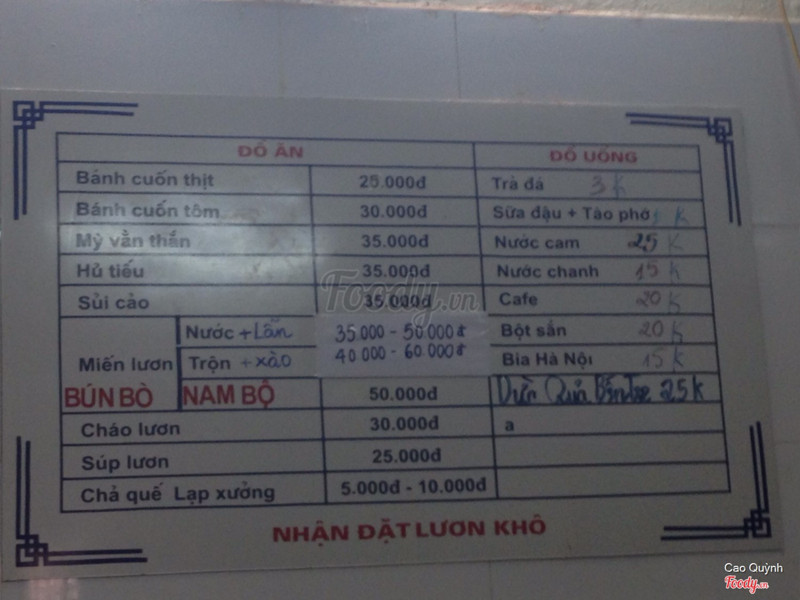 ĐỒ ĂN ĐỒ UỐNG
Bánh cuốn thịt 25.000đ Trà đá 3K
Bánh cuốn tôm 30.000đ Sữa đậu + Tào phớ K
Mỳ vằn thắn 35.000đ Nước cam 25K
Hủ tiếu 35.000đ Nước chanh 15K
Sủi cảo 35.000đ Cafe 20K
Miến lươn Nước + Lẫn 35.000 - 50.000đ Bột sắn 20K
Trộn + xào 40.000 - 60.000đ Bia Hà Nội 15K
BÚN BÒ NAM BỘ 50.000đ Dừa Quả Bến Tre 25K
Cháo lươn 30.000đ a
Súp lươn 25.000đ
Chả quế Lạp xưởng 5.000đ - 10.000đ
NHẬN ĐẶT LƯƠN KHÔ
Foody.vn
Cao Quỳnh
Foody.vn